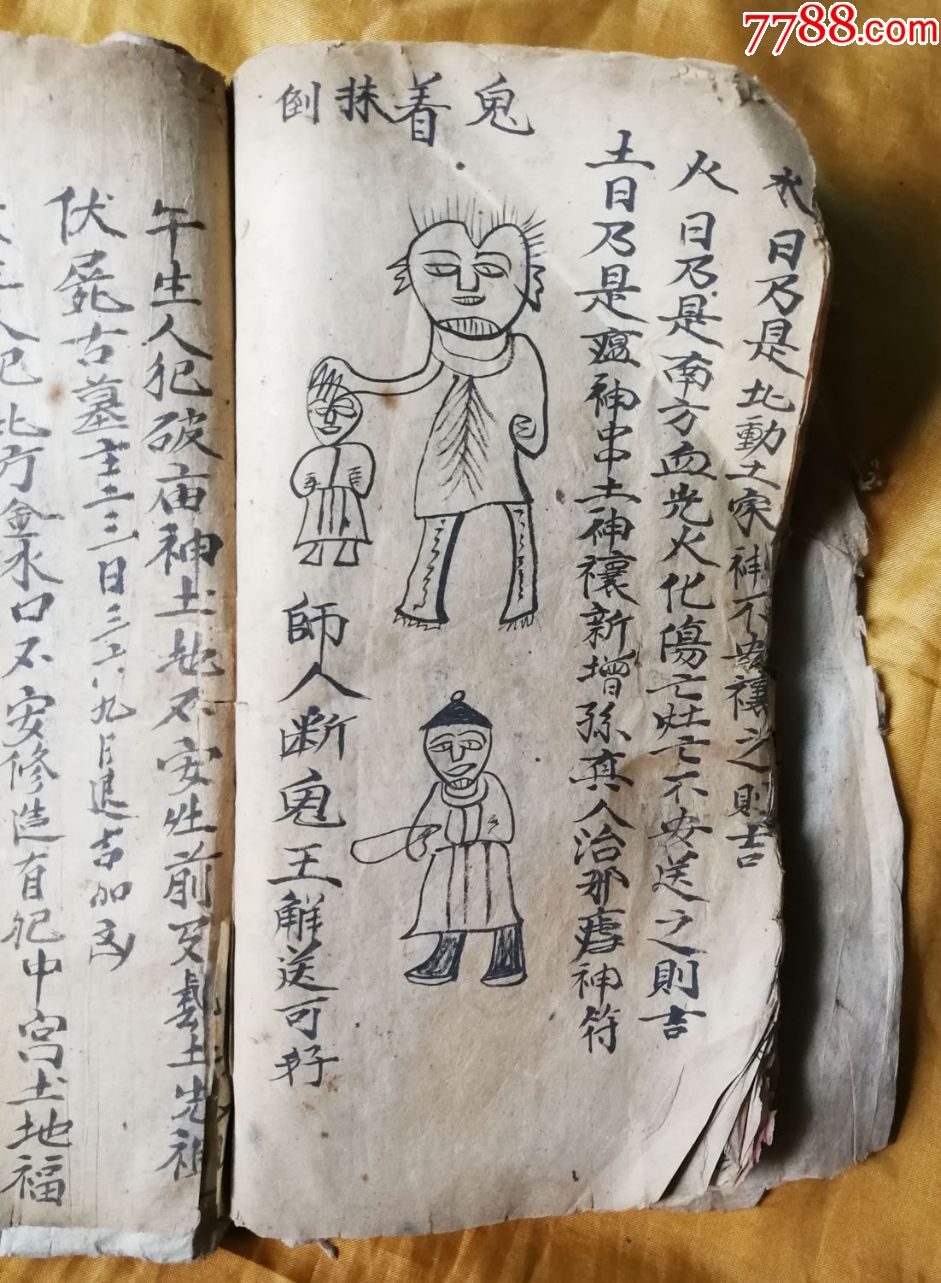 7788.com
鬼着抹倒
水日乃是北動土家神不安禳之則吉
火日乃是南方血光火化傷亡灶亡不安送之則吉
土日乃是瘟神中土神禳新增孫真人治邪瘧神符
師人断鬼王觧送可好
午生人犯破庙神土地不安灶前又動土先祖
伏屍古墓主二三日三六九月進吉加
人犯北方金水口不安修造有犯中宫土地福